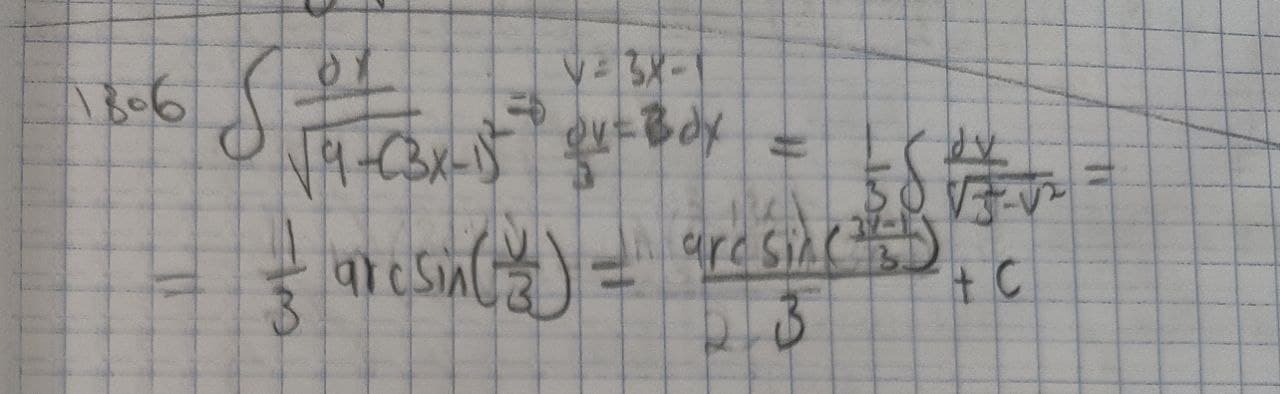 1806 ∫ dx / √(9-(3x-1)² ⇒ v = 3x-1
dv/3 = dx = 1/3 ∫ dv / √(-v²) =
= 1/3 arcsin(v/3) = arcsin((3x-1)/3) / 3 + C